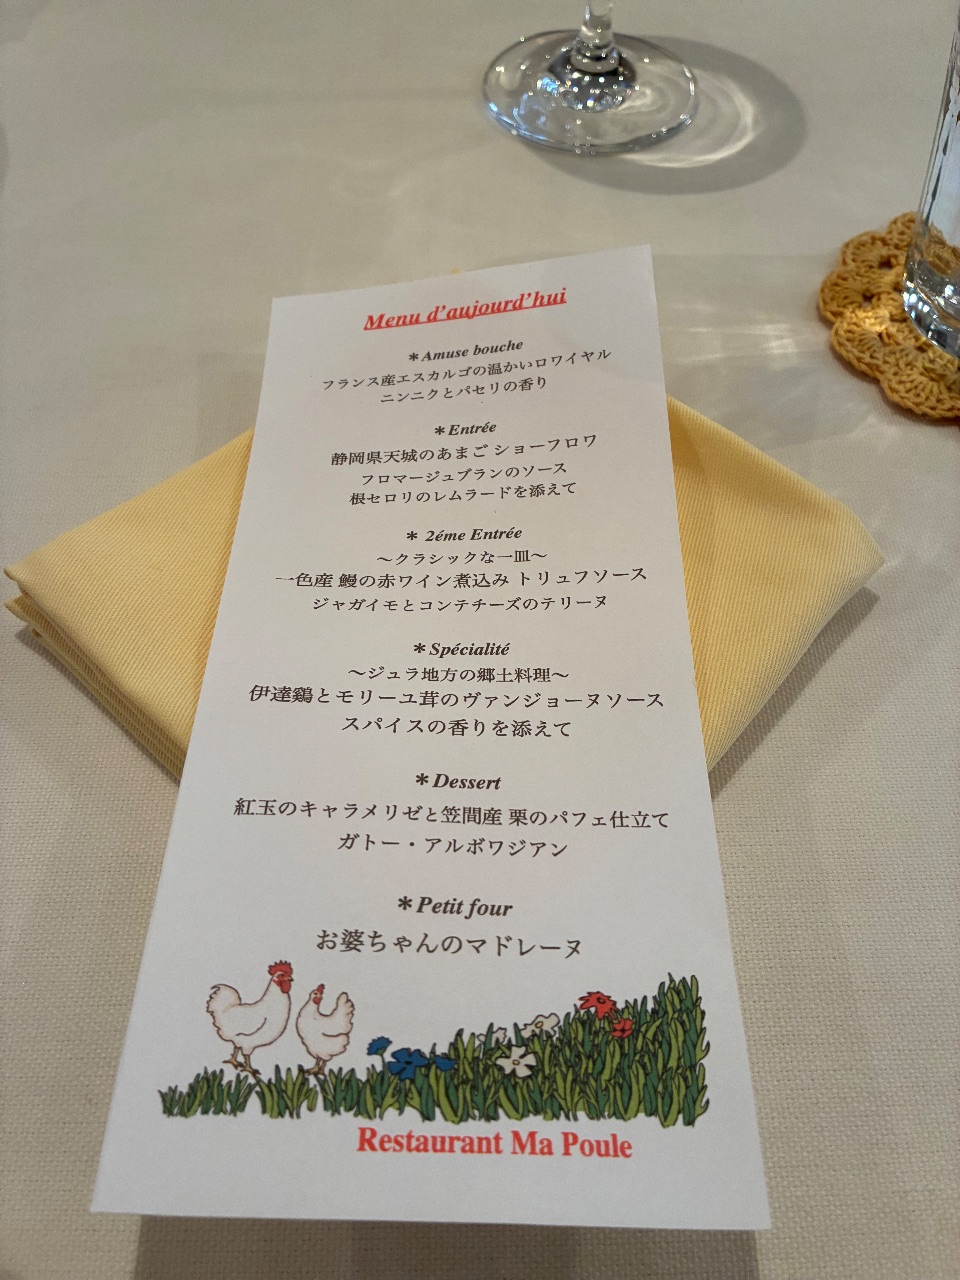 Menu d'aujourd'hui
＊Amuse bouche
フランス産エスカルゴの温かいロワイヤル
ニンニクとパセリの香り
＊Entrée
静岡県天城のあまご ショーフロワ
フロマージュブランのソース
根セロリのレムラードを添えて
＊ 2éme Entrée
～クラシックな一皿～
一色産 鰻の赤ワイン煮込み トリュフソース
ジャガイモとコンテチーズのテリーヌ
＊Spécialité
～ジュラ地方の郷土料理～
伊達鶏とモリーユ茸のヴァンジョーヌソース
スパイスの香りを添えて
＊Dessert
紅玉のキャラメリゼと笠間産 栗のパフェ仕立て
ガトー・アルボワジアン
＊Petit four
お婆ちゃんのマドレーヌ
Restaurant Ma Poule